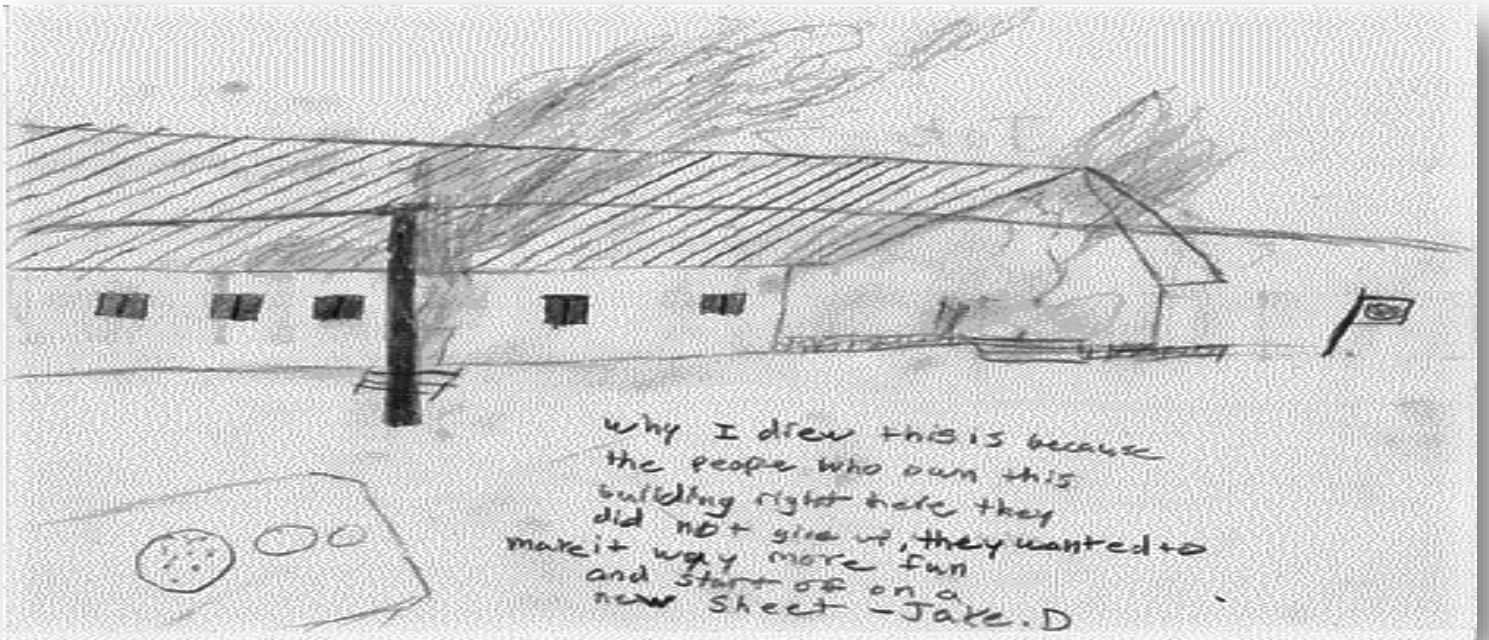 why I drew this is because
the people who own this
building right here they
did not give up, they wanted to
make it way more fun
and start off on a
new sheet - Jake.D